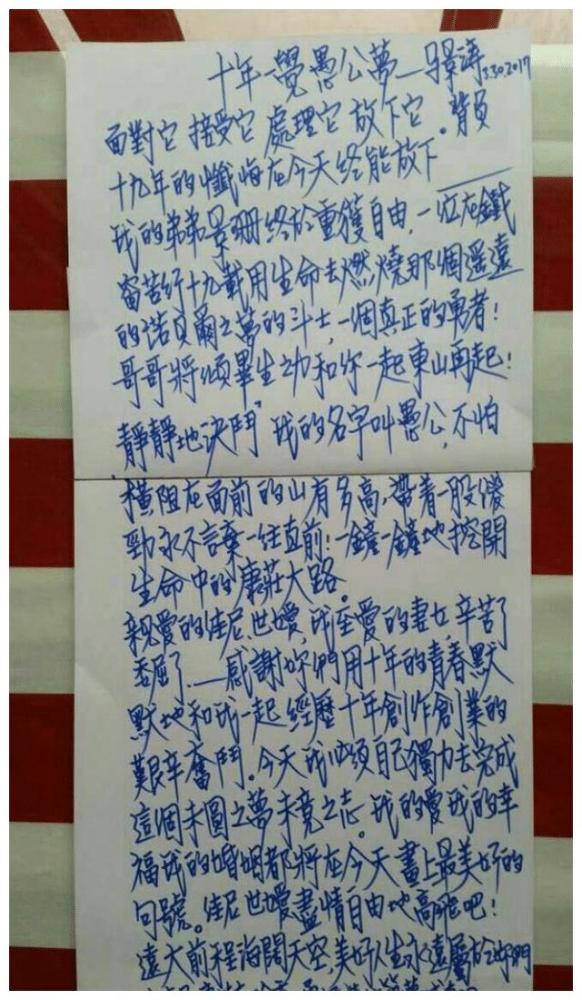 十年一覺愚公夢——景濤 3.30.2017
面對它 接受它 處理它 放下它。背負
十九年的懺悔在今天終能放下——
我的弟弟景珊終於重獲自由,一位在鐵
窗苦行十九載用生命去燃燒那個遥遠
的諾貝爾之夢的斗士,一個真正的勇者!
哥哥將傾畢生之功和你一起東山再起!
靜靜地決鬥,我的名字叫愚公,不怕
橫阻在面前的山有多高,帶着一股傻
勁永不言棄一往直前!一鏟一鏟地挖開
生命中的康莊大路。
親愛的佳尼,世嬡,我至愛的妻女,辛苦了
委屈了——感謝妳們用十年的青春默
默地和我一起經歷十年創作創業的
艱辛奮鬥。今天我必須自己獨力去完成
這個未圓之夢未竟之志。我的愛我的幸
福我的婚姻都將在今天畫上最美好的
句號。佳尼世嬡盡情自由地高飛吧!
遠大前程海闊天空,美好人生永遠屬於妳們